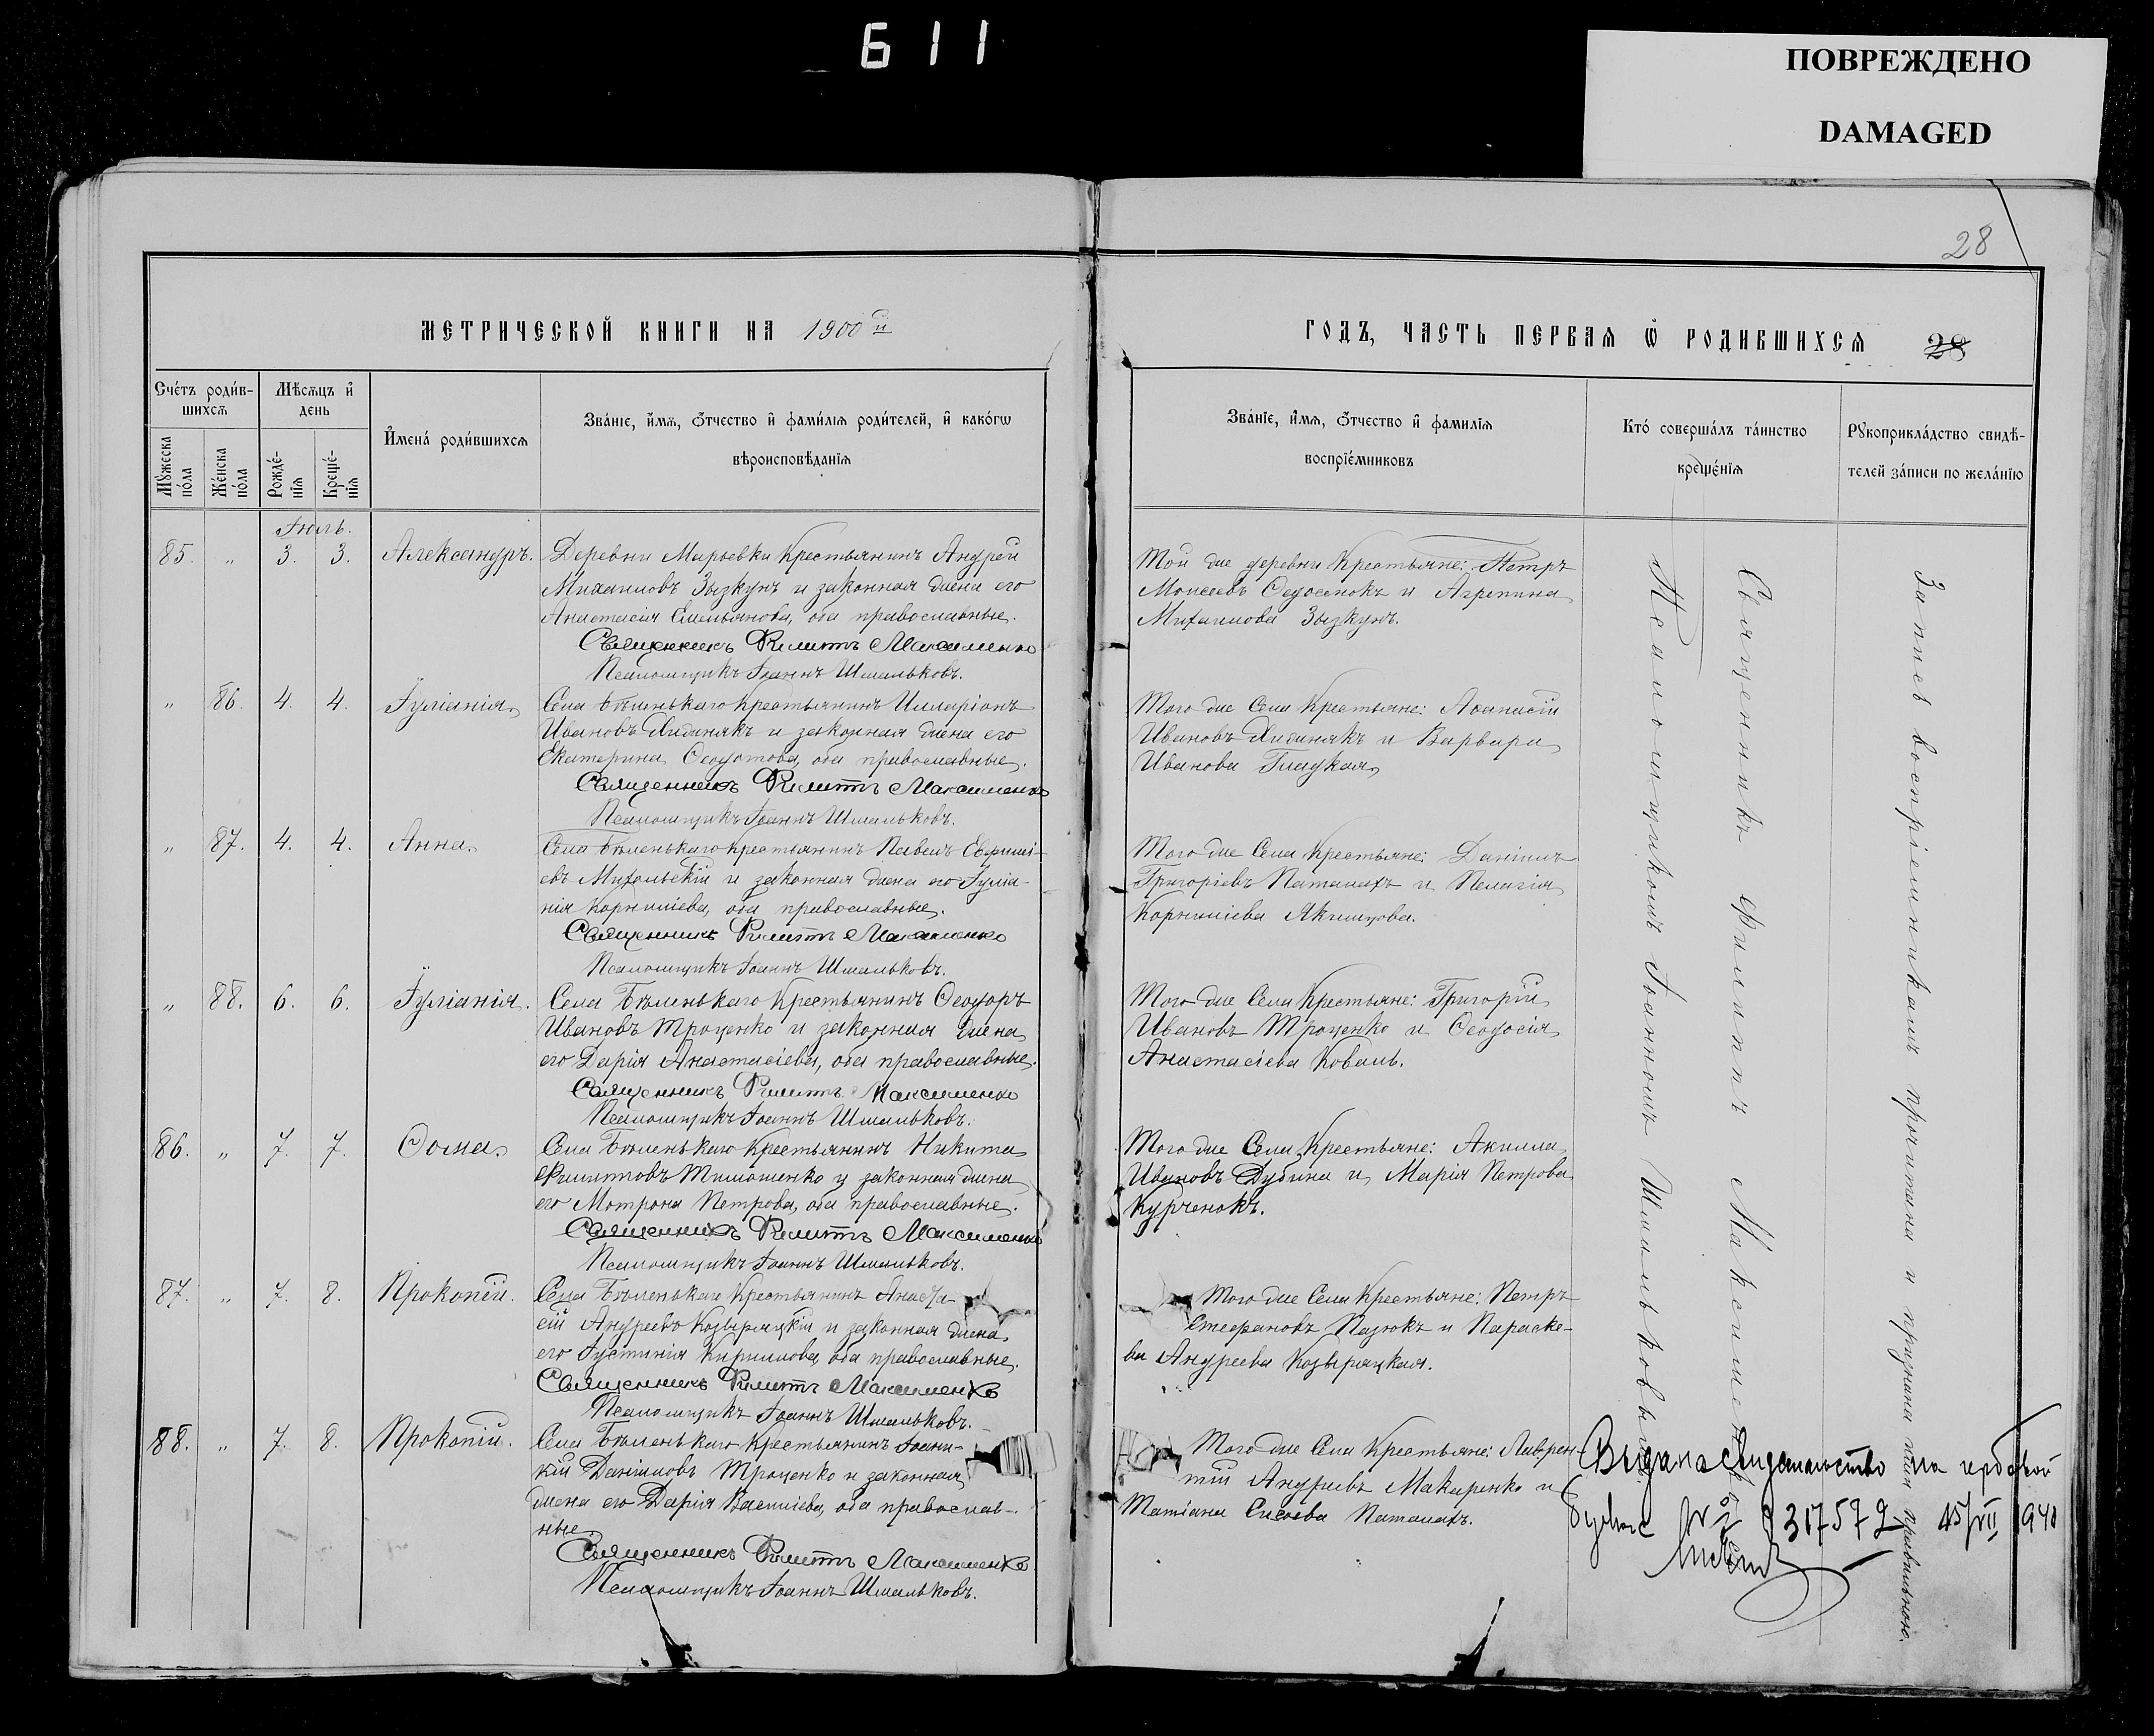 611
ПОВРЕЖДЕНО
DAMAGED
28
МЕТРИЧЕСКОЙ КНИГИ НА 1900й
ГОДЪ, ЧАСТЬ ПЕРВАЯ Ѽ РОДИВШИХСЯ 28
Счетъ родив-
шихся
Мѣсяцъ и
день
Имена родившихся
Званіе, имя, отчество и фамилія родителей, и какогѡ
вѣроисповѣданія
Мужеска
пола
Женска
пола
Рожде-
нія
Креще-
нія
Званіе, имя, отчество и фамилія
воспріемниковъ
Кто совершалъ таинство
крещенія
Рукоприкладство свидѣ-
телей записи по желанію
Іюль.
85. „ 3. 3. Александръ. Деревни Марьевки крестьянинъ Андрей
Михаиловъ Зызкунъ и законная жена его
Анастасія Емельянова, оба православные.
Священникъ Филиппъ Максименко
Псаломщикъ Іоаннъ Шмальковъ.
Той же деревни крестьяне: Петръ
Моисеевъ Федосенокъ и Агрепина
Михаилова Зызкунъ.
„ 86. 4. 4. Іуліанія. Села Бѣленькаго крестьянинъ Илларіонъ
Ивановъ и законная жена его
Екатерина Ѳеодотова, оба православные.
Священникъ Филиппъ Максименко
Псаломщикъ Іоаннъ Шмальковъ.
Того же Села крестьяне: Аѳанасій
Ивановъ и Варвара
Иванова Гладкая
„ 87. 4. 4. Анна. Села Бѣленькаго крестьянинъ Павелъ
евъ и законная жена его Іуліа-
нія Корниліева, оба православные.
Священникъ Филиппъ Максименко
Псаломщикъ Іоаннъ Шмальковъ.
Того же Села крестьяне: Даніилъ
Григоріевъ Паталахъ и Пелагія
Корниліева Якимцова.
„ 88. 6. 6. Іуліанія. Села Бѣленькаго крестьянинъ Ѳеодоръ
Ивановъ Троценко и законная жена
его Дарія Анастасіева, оба православные.
Священникъ Филиппъ Максименко
Псаломщикъ Іоаннъ Шмальковъ.
Того же Села крестьяне: Григорій
Ивановъ Троценко и Ѳеодосія
Анастасіева Коваль.
86. „ 7. 7. Ѳома. Села Бѣленькаго крестьянинъ Никита
Филипповъ Тимошенко и законная жена
его Мотрона Петрова, оба православные.
Священникъ Филиппъ Максименко
Псаломщикъ Іоаннъ Шмальковъ.
Того же Села крестьяне: Акилла
Ивановъ Дубина и Марія Петрова
Курченокъ.
87. „ 7. 8. Прокопій. Села Бѣленькаго крестьянинъ Анаста-
сій Андреевъ Козыряцкій и законная жена
его Іустинія Кириллова, оба православные.
Священникъ Филиппъ Максименко
Псаломщикъ Іоаннъ Шмальковъ.
Того же Села крестьяне: Петръ
Стефановъ Пазюкъ и Параске-
ва Андреева Козыряцкая.
88. „ 7. 8. Прокопій. Села Бѣленькаго крестьянинъ Іоанни-
кій Даніиловъ Троценко и законная
жена его Дарія Василіева, оба православ-
ные.
Священникъ Филиппъ Максименко
Псаломщикъ Іоаннъ Шмальковъ.
Того же Села крестьяне: Лаврен-
тій Андреевъ Макаренко и
Татіана Сисоева Паталахъ.
Священникъ Филиппъ Максименко
Псаломщикомъ Іоанномъ Шмальковымъ
Запись воспріемникамъ прочитана и признана ими правильною.
Выдано свидетельство на гербовой
бумаге № 317572 15/VII 1940